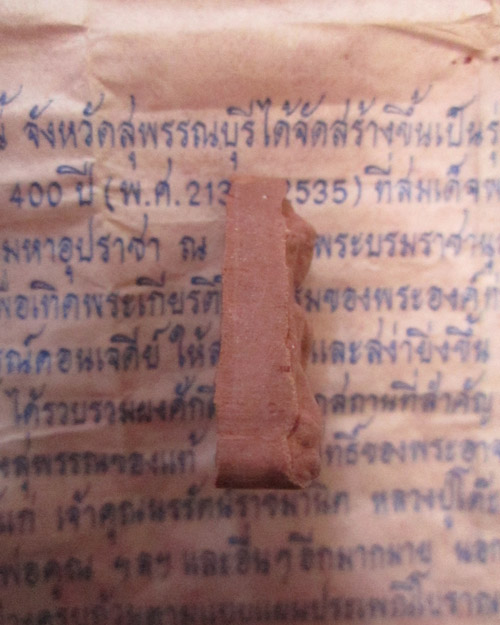 จังหวัดสุพรรณบุรีได้จัดสร้างขึ้นเป็น
400 ปี (พ.ศ. 213 2535) ที่สมเด็จ
มหาอุปราชา ณ พระบรมราชา
เพื่อเทิดพระเกียรติ ของพระองค์
ดอนเจดีย์ ให้ และสง่ายิ่งขึ้น
ได้รวบรวมผงศักดิ์ สถานที่สำคัญ
สุพรรณของแท้ ของพระอา
แก่ เจ้าคุณนรรัตน์ราชมานิต หลวงปู่โต๊ะ
พ่อคุณ ฯลฯ และอื่นๆ อีกมากมาย นอก
ตามแบบแผนประเพณีโบราณ